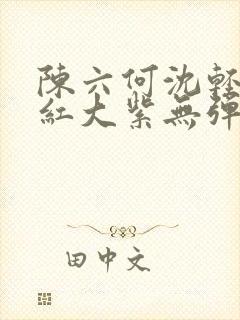 陳六何沈輕
紅大紫無彈
田中文